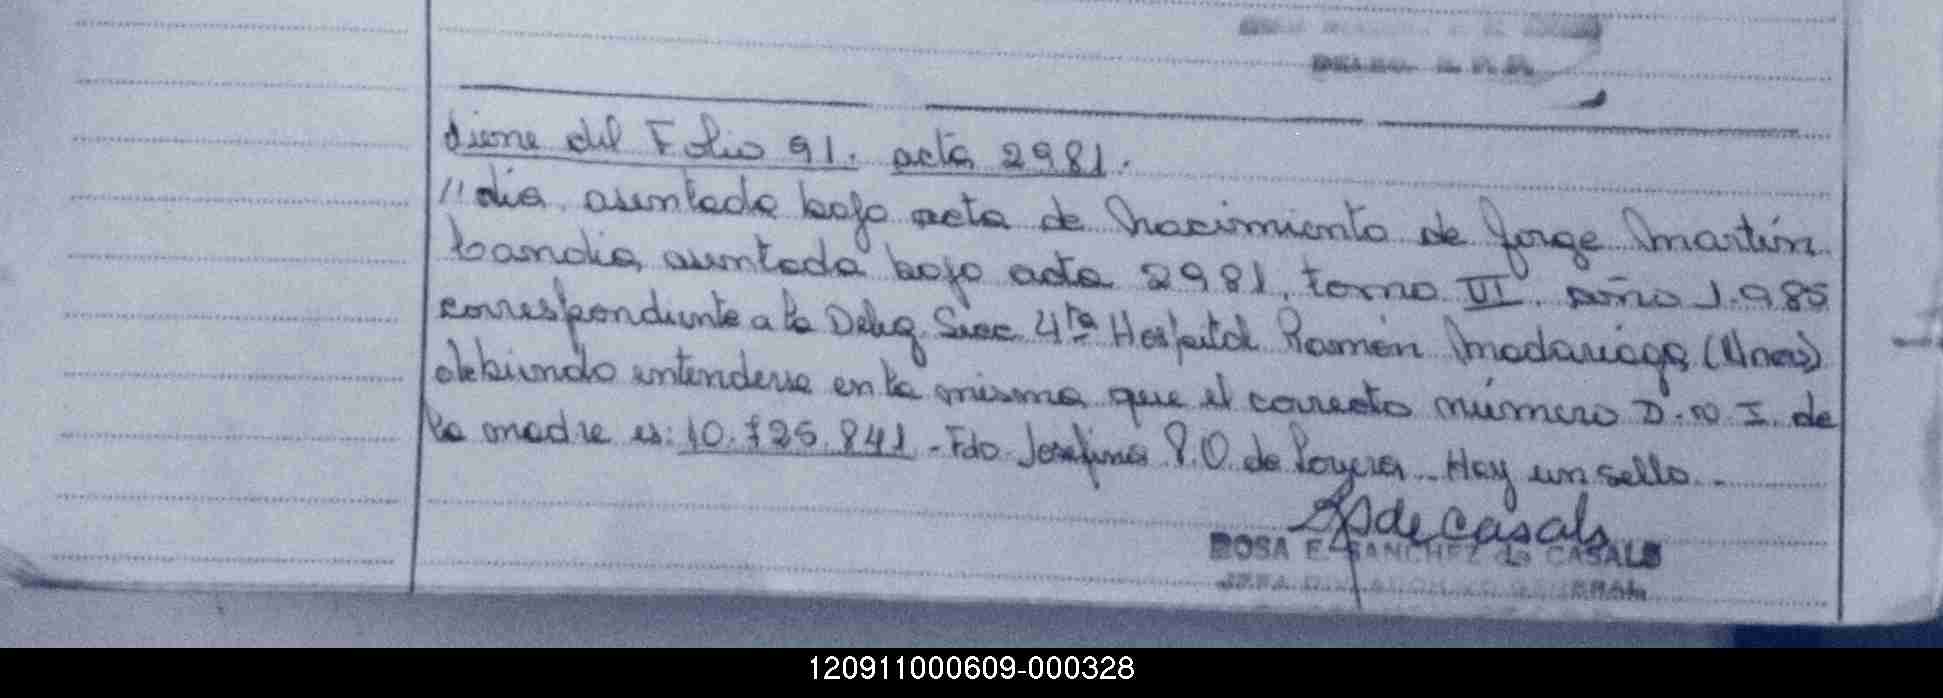 DELEG. R. P.
Viene del Folio 91. acta 2981.
"dia, asentada bajo acta de Nacimiento de Jorge Martín
Candia, asentada bajo acta 2981, tomo VI, año 1.985
correspondiente a la Deleg. Secc. 4ta Hospital Ramón Madariaga, (Mnes)
debiendo entenderse en la misma que el correcto número D.N.I. de
la madre es: 10.725.841 - Fdo Josefina P.O. de - Hay un sello -
de Casals
ROSA E. SANCHEZ de CASALS
JEFA DIV. ARCHIVO GENERAL
120911000609-000328